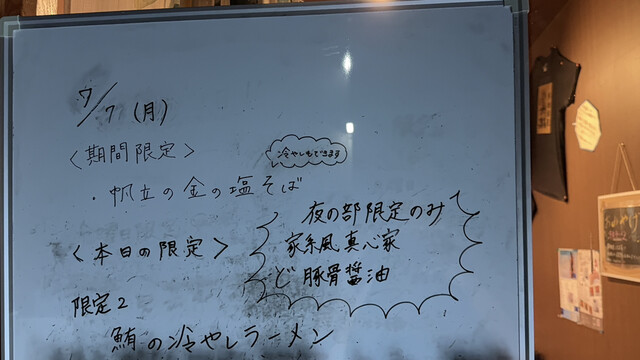 7/7 (月)
〈期間限定〉
冷やしもできます
・帆立の金の塩そば
夜の部限定のみ
〈本日の限定〉
家系風真心家
ど豚骨醤油
限定2
鮪の冷やしラーメン